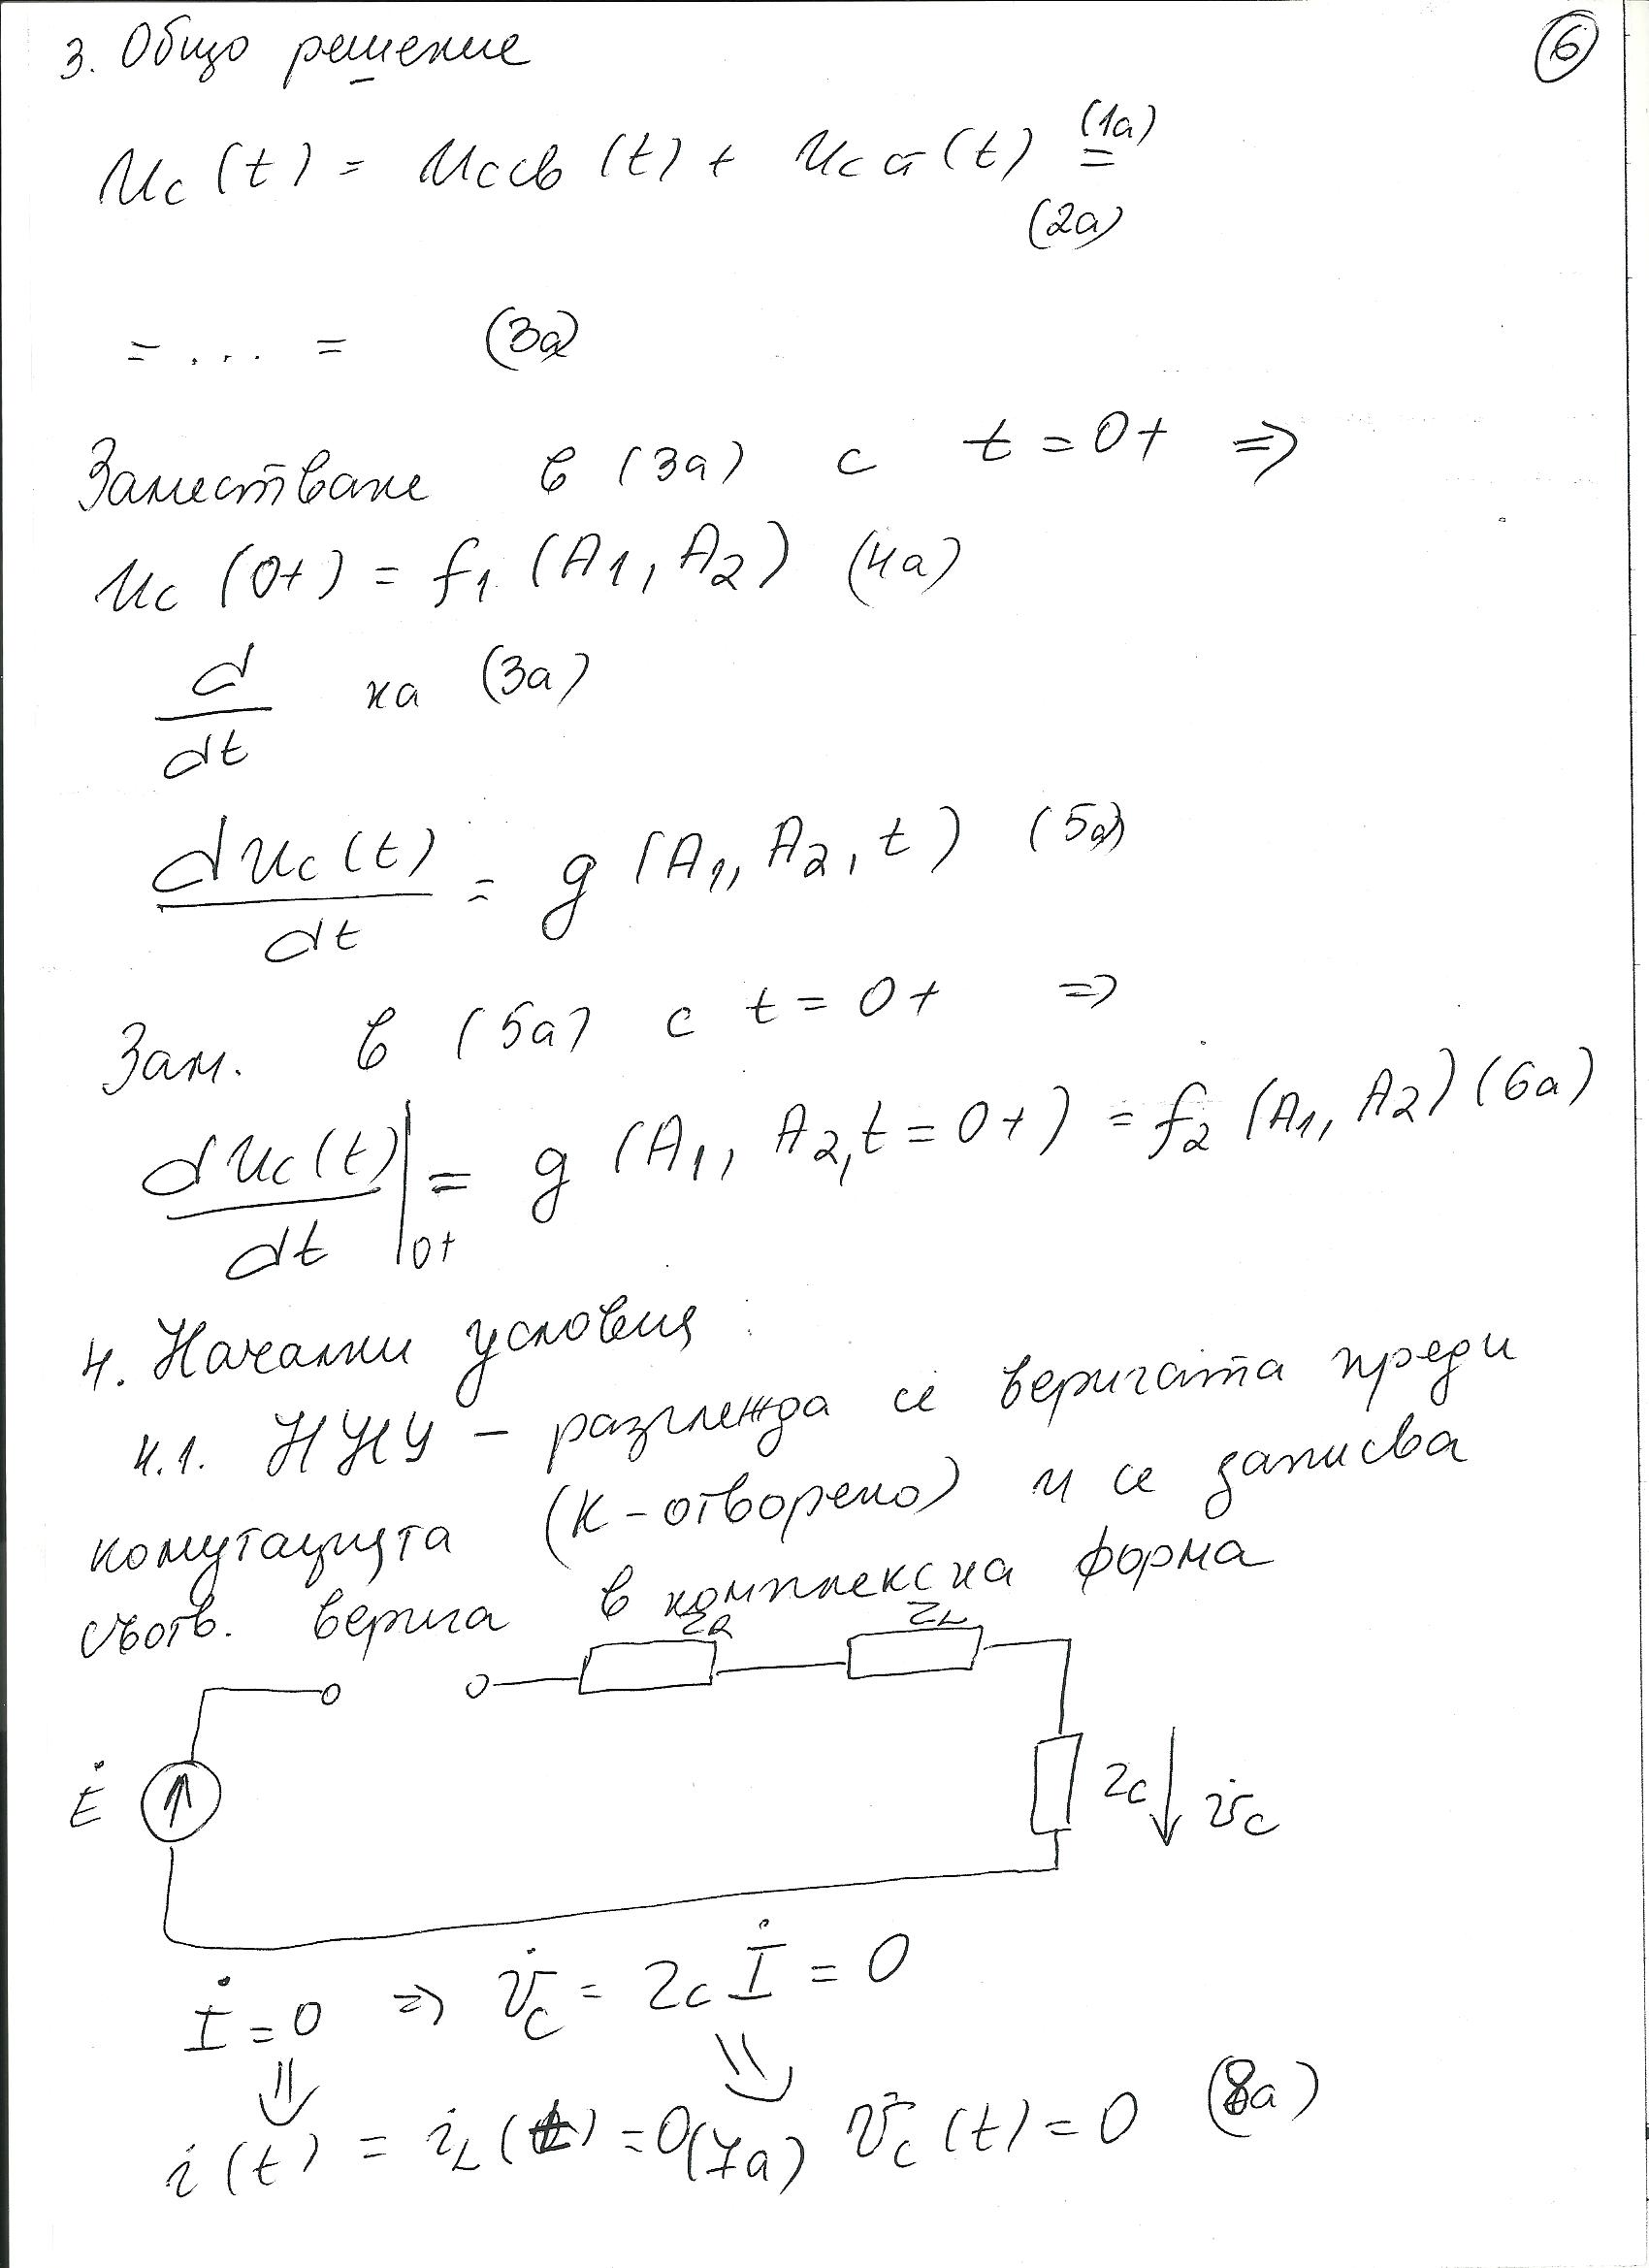 3. Общо решение
6
uc(t) = uccв(t) + ucст(t) = (1a) (2a)
= ... = (3a)
Заместване в (3a) с t = 0+ ⇒
uc(0+) = f1(A1, A2) (4a)
d/dt на (3a)
duc(t)/dt = g(A1, A2, t) (5a)
Зам. в (5a) с t = 0+ ⇒
duc(t)/dt|0+ = g(A1, A2, t = 0+) = f2(A1, A2) (6a)
4. Начални условия
4.1. ННУ – разглежда се веригата преди
комутацията (К-отворено) и се записва
съотв. верига в комплексна форма
ZR ZL
Ė
Zc U̇c
İ = 0 ⇒ U̇c = Zc İ = 0
⇓ ⇓
i(t) = iL(t) = 0 (7a) Uc(t) = 0 (8a)